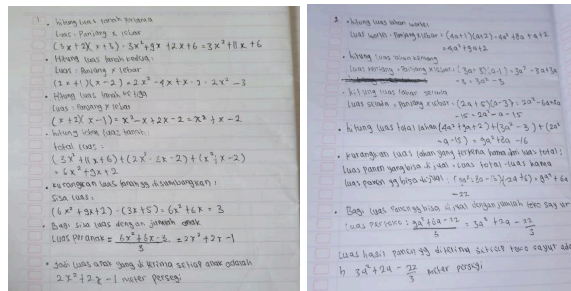 1. • hitung luas tanah pertama
luas = Panjang x lebar
(3x + 2)(x + 3) = 3x² + 9x + 2x + 6 = 3x² + 11x + 6
• Hitung luas tanah kedua:
Luas : Panjang x lebar
(2x + 1)(x - 2) = 2x² - 4x + x - 2 = 2x² - 3
• Hitung luas tanah ketiga
luas : Panjang x lebar
(x + 2)(x - 1) = x² - x + 2x - 2 = x² + x - 2
• hitung total luas tanah:
total luas:
(3x² + 11x + 6) + (2x² - 3x - 2) + (x² + x - 2)
= 6x² + 9x + 2
• kurangkan luas tanah yg disumbangkan:
Sisa luas:
(6x² + 9x + 2) - (3x + 5) = 6x² + 6x - 3
• Bagi sisa luas dengan jumlah anak
Luas peranak = 6x² + 6x - 3 / 3 = 2x² + 2x - 1
• Jadi luas anak yang diterima setiap anak adalah
2x² + 2x - 1 meter persegi
2. • hitung luas lahan wortel:
luas wortel = Panjang x lebar = (4a + 1)(a + 2) = 4a² + 8a + a + 2
= 4a² + 9a + 2
• hitung luas lahan kentang
luas kentang = Panjang x lebar = (3a + 3)(a - 1) = 3a² - 3a + 3a
- 3 = 3a² - 3
• hitung luas lahan selada
luas selada = Panjang x lebar = (2a + 5)(a - 3) = 2a² - 6a + 5a
- 15 = 2a² - a - 15
• hitung luas total lahan (4a² + 9a + 2) + (3a² - 3) + (2a²
- a - 15) = 9a² + 8a - 16
• kurangkan luas lahan yang terkena hama dari luas total:
luas panen yang bisa dijual = luas total - luas hama
luas panen yg bisa dijual =
- 22
• Bagi luas Panen yg bisa dijual dengan jumlah toko sayur
luas pertoko = 9a² + 6a - 22 / 3 = 3a² + 2a - 22/3
luas hasil panen yg diterima setiap toko sayur ada
h 3a² + 2a - 22/3 meter persegi